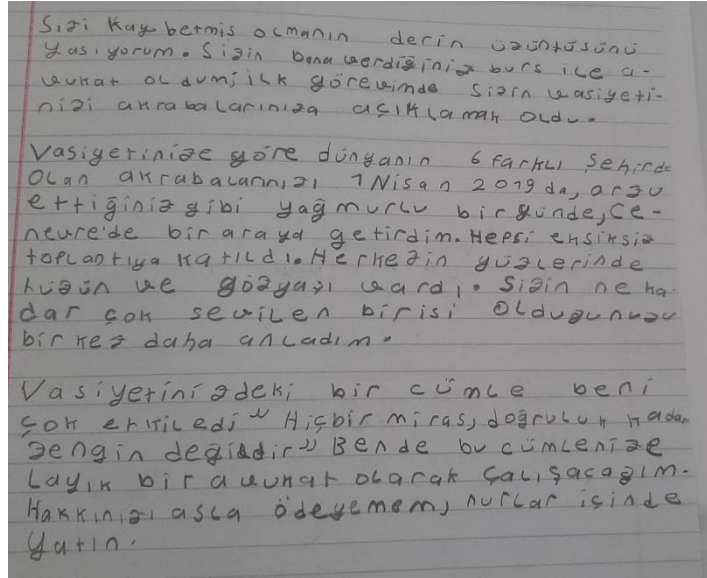 Sizi kaybetmiş olmanın derin üzüntüsünü
yaşıyorum. Sizin bana verdiğiniz burs ile a-
vukat oldum, ilk görevimde sizin vasiyeti-
nizi akrabalarınıza açıklamak oldu.
Vasiyetinize göre dünyanın 6 farklı şehirde
olan akrabalarınızı 1 Nisan 2019 da, arzu
ettiğiniz gibi yağmurlu bir günde, Ce-
nevre'de bir araya getirdim. Hepsi eksiksiz
toplantıya katıldı. Herkezin yüzlerinde
hüzün ve gözyaşı vardı. Sizin ne ka-
dar çok sevilen birisi olduğunuzu
bir kez daha anladım.
Vasiyetinizdeki bir cümle beni
çok etkiledi "Hiçbir miras, doğruluk kadar
zengin değildir" Bende bu cümlenize
layık bir avukat olarak çalışacağım.
Hakkınızı asla ödeyemem, nurlar içinde
yatın.